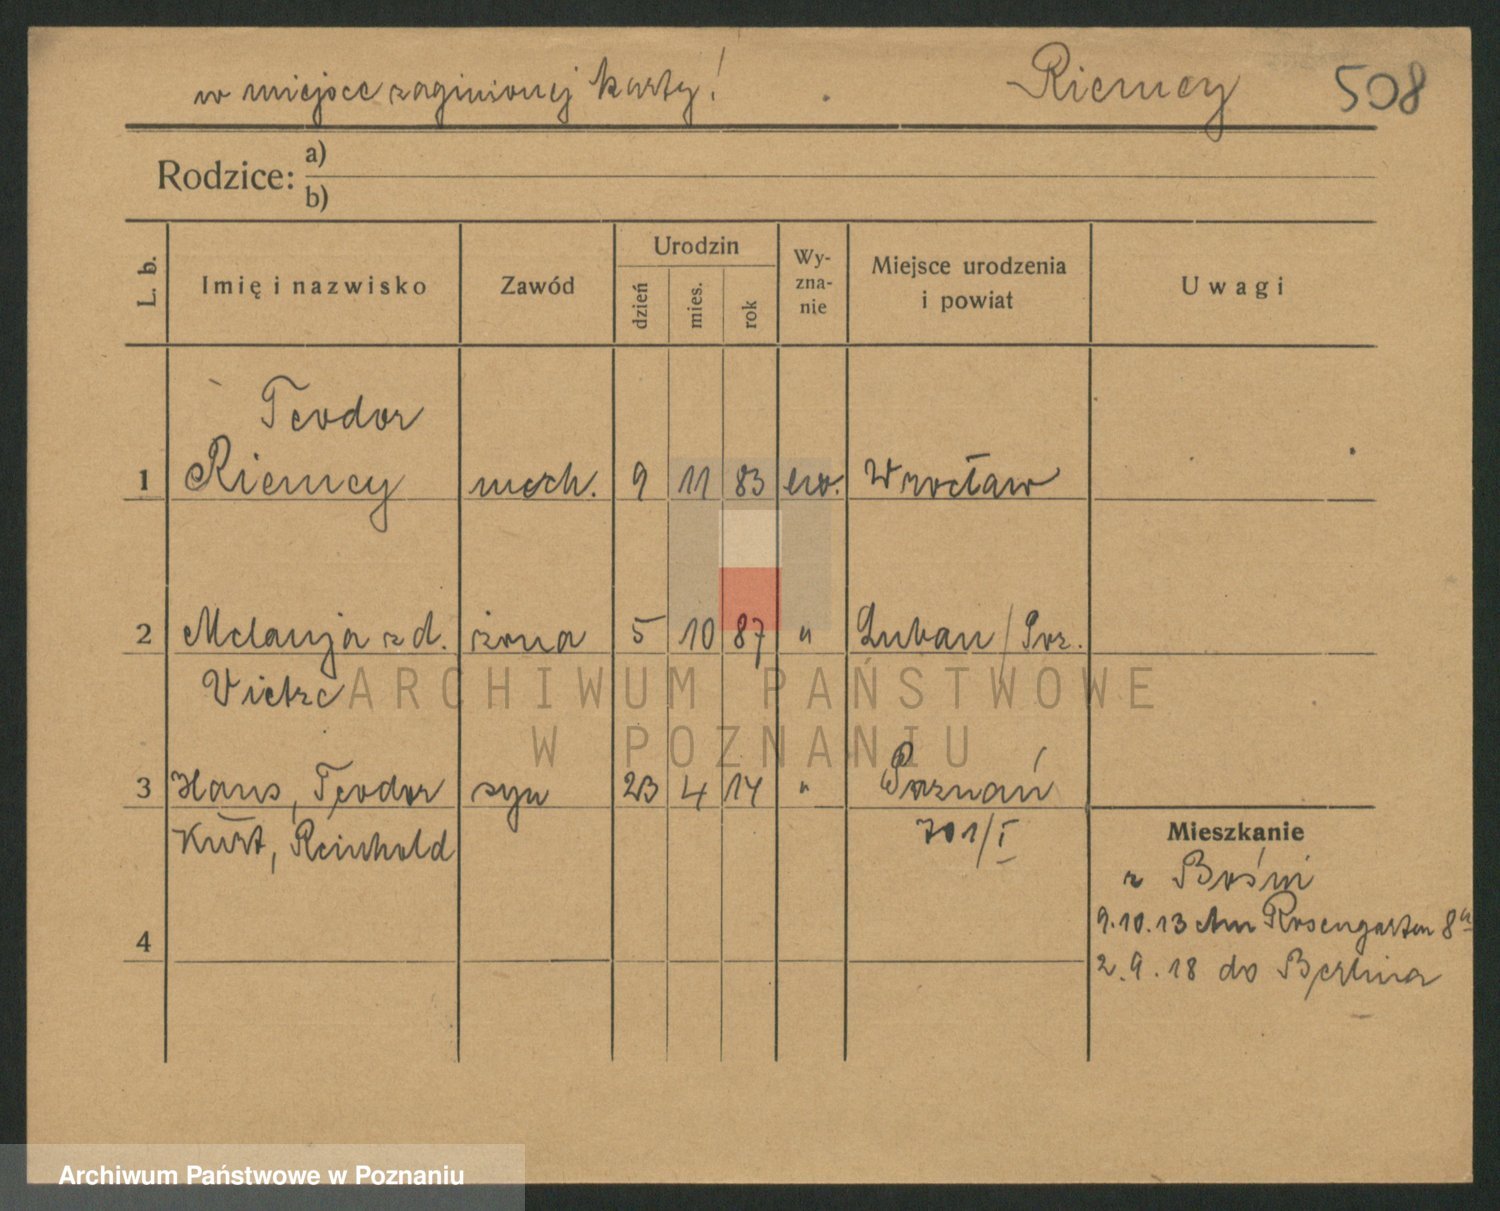 w miejsce zaginionej karty!
Riemey 508
Rodzice: a)
b)
L. b. Imię i nazwisko Zawód Urodzin dzień mies. rok Wy-zna-nie Miejsce urodzenia i powiat Uwagi
Teodor
1 Riemey mech. 9 11 83 ew. Wrocław
2 Melanja z d. żona 5 10 87 " Luban / Poz.
Vietze
3 Hans, Teodor syn 23 4 14 " Poznań
Kurt, Reinhold 701/I
Mieszkanie
z Bośni
9.10.13 Am Rosengarten 8a
4
2.9.18 do Berlina
ARCHIWUM PAŃSTWOWE
W POZNANIU
Archiwum Państwowe w Poznaniu